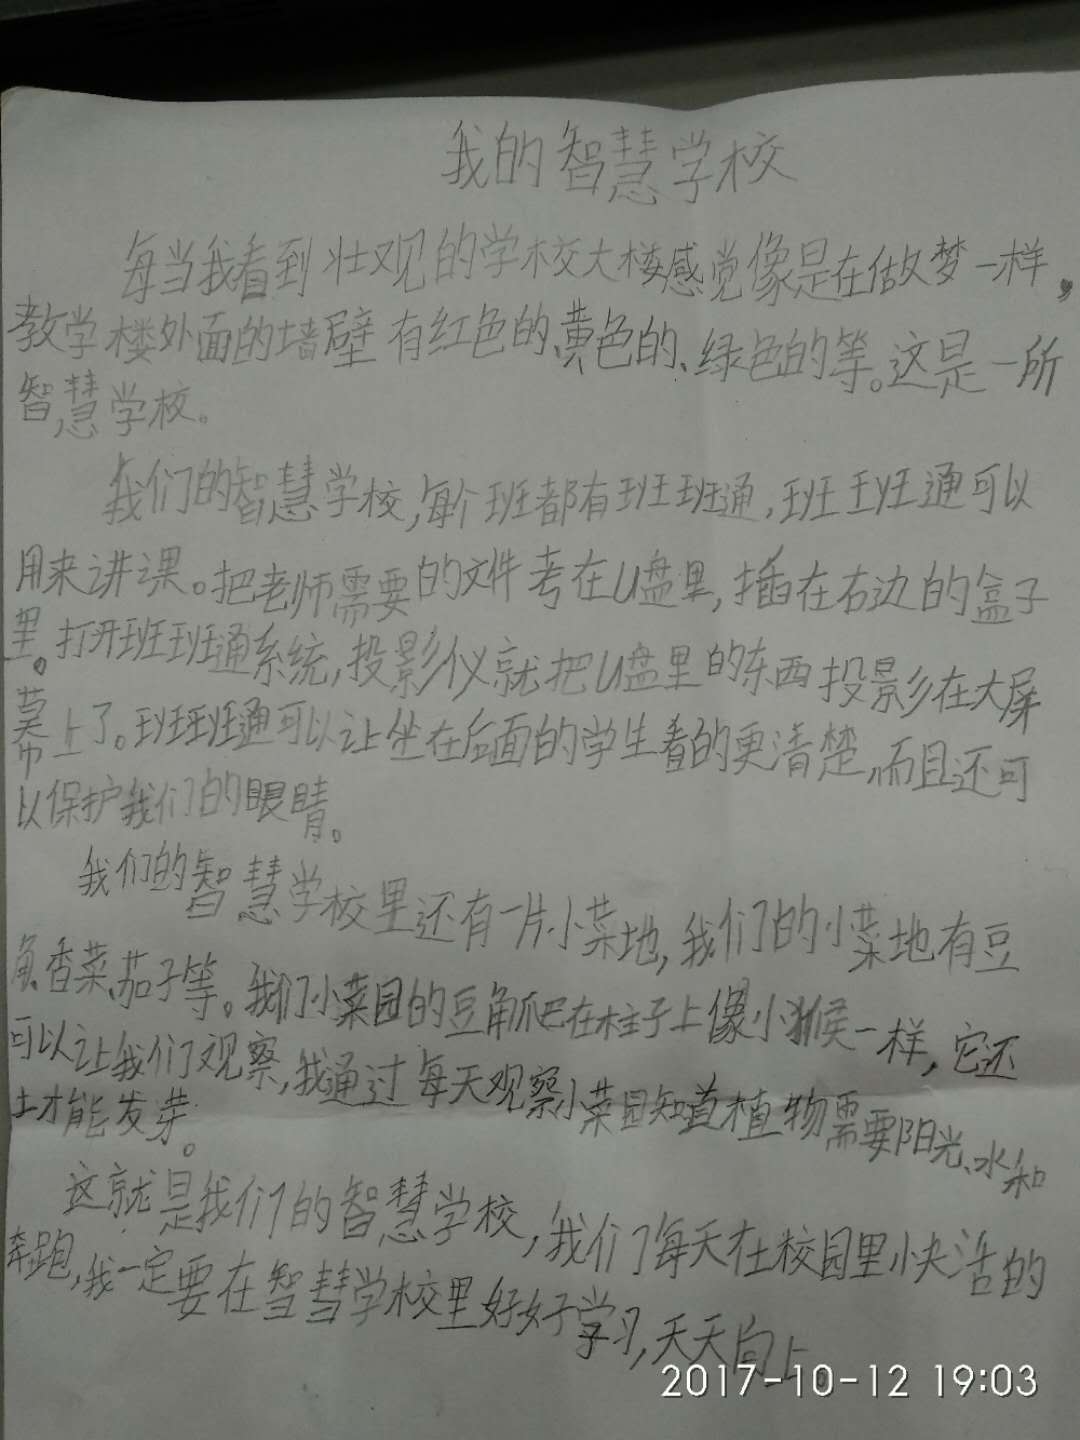 我的智慧学校
每当我看到壮观的学校大楼感觉像是在做梦一样，
教学楼外面的墙壁有红色的、黄色的、绿色的等。这是一所
智慧学校。
我们的智慧学校，每个班都有班班通，班班通可以
用来讲课。把老师需要的文件考在U盘里，插在右边的盒子
里。打开班班通系统，投影仪就把U盘里的东西投影在大屏
幕上了。班班通可以让坐在后面的学生看的更清楚，而且还可
以保护我们的眼睛。
我们的智慧学校里还有一片小菜地，我们的小菜地有豆
角、香菜、茄子等。我们小菜园的豆角爬在柱子上像小猴一样，它还
可以让我们观察，我通过每天观察小菜园知道植物需要阳光、水和
土才能发芽。
这就是我们的智慧学校，我们每天在校园里快活的
奔跑，我一定要在智慧学校里好好学习，天天向上。
2017-10-12 19:03